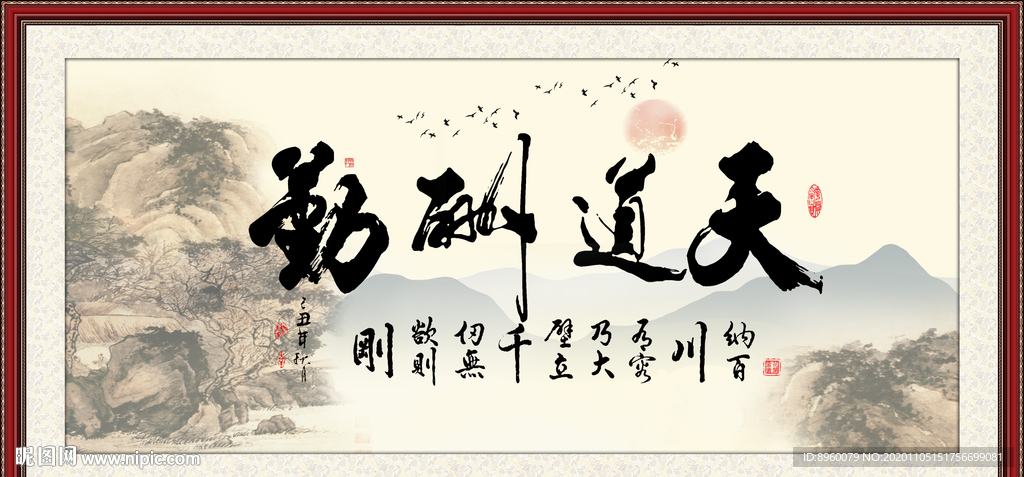 天道酬勤
納百川有容乃大壁立千仞無欲則剛
己丑年秋月
昵图网 www.nipic.com
ID:8960079 NO:20201105151756699081